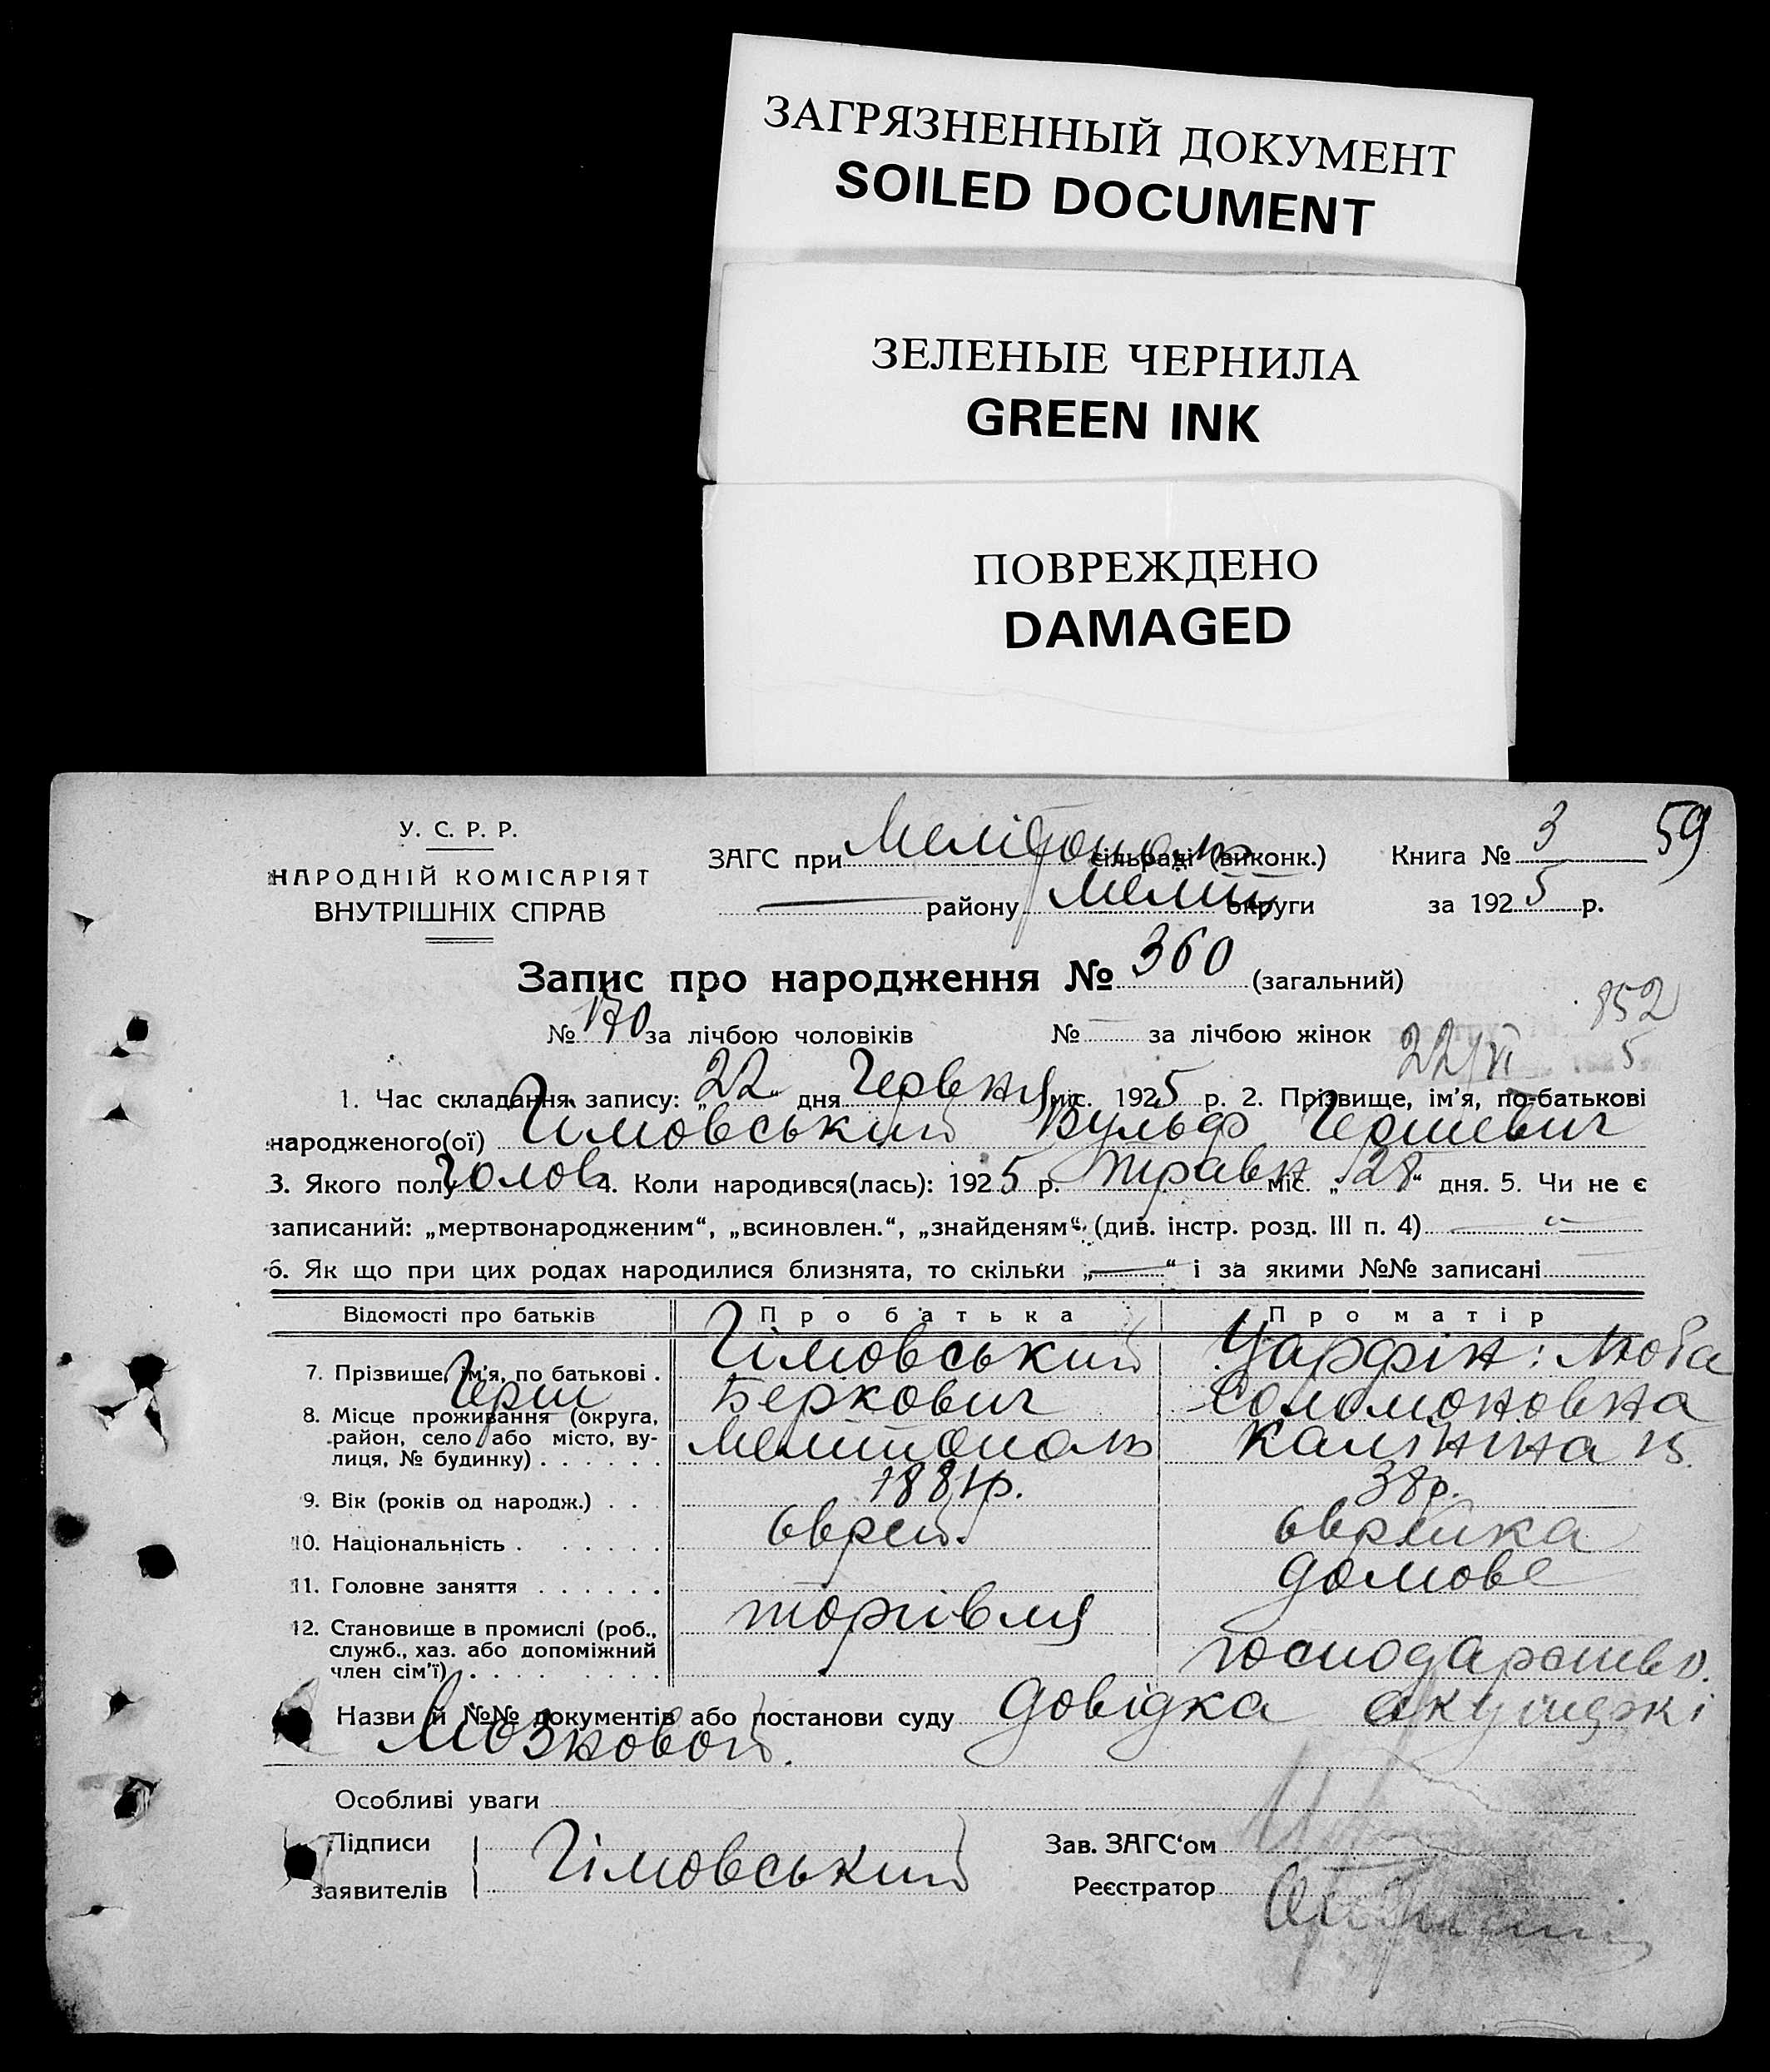 ЗАГРЯЗНЕННЫЙ ДОКУМЕНТ
SOILED DOCUMENT
ЗЕЛЕНЫЕ ЧЕРНИЛА
GREEN INK
ПОВРЕЖДЕНО
DAMAGED
У. С. Р. Р.
НАРОДНІЙ КОМІСАРІЯТ
ВНУТРІШНІХ СПРАВ
ЗАГС при Мелітополь сільраді (виконк.) Книга № 3 59
— району Меліт округи за 1925 р.
Запис про народження № 360 (загальний)
852
№ 170 за лічбою чоловіків № — за лічбою жінок 22/VI 5
1. Час складання запису: „22“ дня Червня міс. 1925 р. 2. Прізвище, ім'я, по-батькові
народженого(ої) Гімовський Вульф Гершевич
3. Якого полу чолов 4. Коли народився(лась): 1925 р. травн міс. „28“ дня. 5. Чи не є
записаний: „мертвонародженим“, „всиновлен.“, „знайденям“ (див. інстр. розд. III п. 4) —
6. Як що при цих родах народилися близнята, то скільки „—“ і за якими №№ записані
Відомості про батьків Про батька Про матір
7. Прізвище, ім'я, по батькові . Гімовський Царфін: Люба
Герш Беркович Соломоновна
8. Місце проживання (округа, район, село або місто, вулиця, № будинку) . . . . . . Мелітополь Калініна 13.
9. Вік (років од народж.) . . . 1881р. 38р.
10. Національність . . . . . . єврей. єврейка
11. Головне заняття . . . . . . торгівля домове
12. Становище в промислі (роб., служб., хаз. або допоміжний член сім'ї) . . . . . . . . господарство.
Назви й №№ документів або постанови суду довідка акушерки
Мозковой.
Особливі уваги
Підписи
заявителів Гімовський
Зав. ЗАГС‘ом
Реєстратор